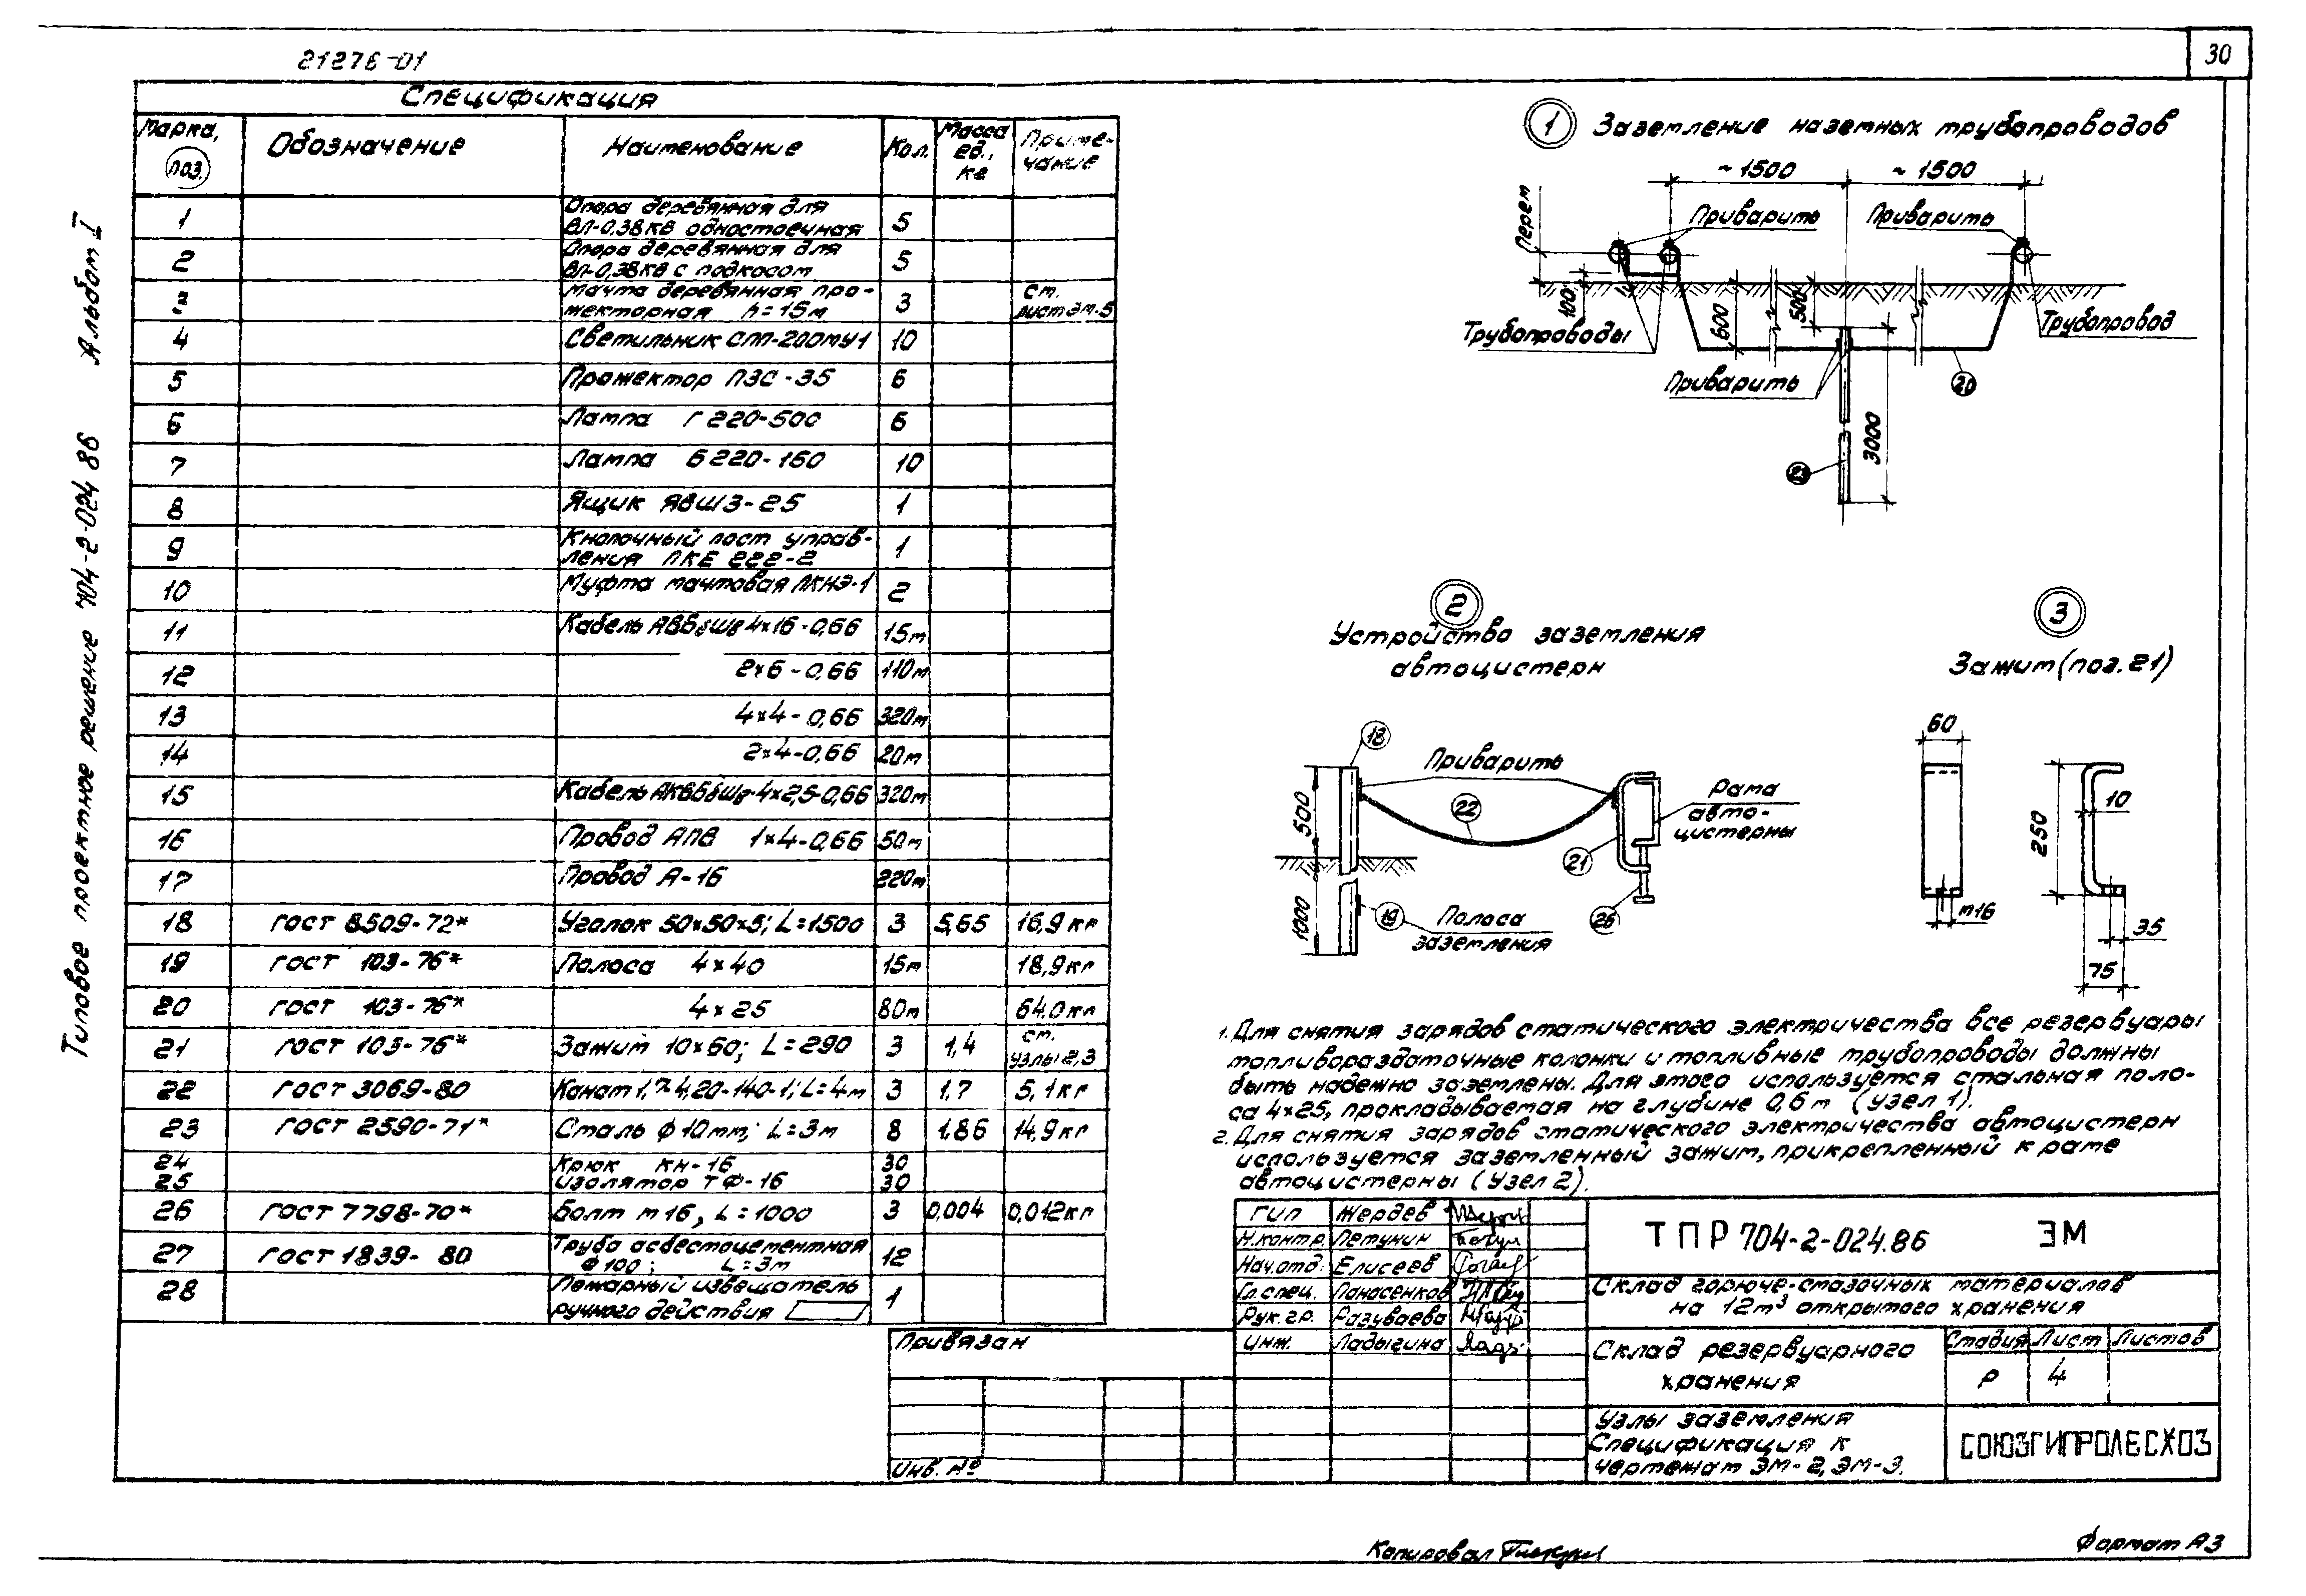 21276-01
30
Типовое проектное решение 704-2-024 86 Альбом I
Спецификация
Марка, поз. Обозначение Наименование Кол. Масса ед., кг Примечание
1 Опора деревянная для
ВЛ-0,38кВ одностоечная 5
2 Опора деревянная для
ВЛ-0,38кВ с подкосом 5
3 Мачта деревянная про-
жекторная h=15м 3 см. лист ЭМ-5
4 Светильник СПП-200МУ1 10
5 Прожектор ПЗС-35 6
6 Лампа Г 220-500 6
7 Лампа Б 220-160 10
8 Ящик ЯВШ3-25 1
9 Кнопочный пост управ-
ления ПКЕ 222-2 1
10 Муфта мачтовая ПКНЭ-1 2
11 Кабель АВБбШв 4×16-0,66 15м
12 2×6-0,66 110м
13 4×4-0,66 320м
14 2×4-0,66 20м
15 Кабель АКВБбШв-4×2,5-0,66 320м
16 Провод АПВ 1×4-0,66 50м
17 Провод А-16 220м
18 ГОСТ 8509-72* Уголок 50×50×5; L=1500 3 5,65 16,9кг
19 ГОСТ 103-76* Полоса 4×40 15м 18,9кг
20 ГОСТ 103-76* 4×25 80м 64.0кг
21 ГОСТ 103-76* Зажим 10×60; L=290 3 1,4 см. узлы 2,3
22 ГОСТ 3069-80 Канат 4,20-140-1; L=4м 3 1,7 5,1кг
23 ГОСТ 2590-71* Сталь ф10мм; L=3м 8 1,86 14,9кг
24 Крюк КН-16 30
25 Изолятор ТФ-16 30
26 ГОСТ 7798-70* Болт м16, L=1000 3 0,004 0,012кг
27 ГОСТ 1839-80 Труба асбестоцементная
ф100; L=3м 12
28 Пожарный извещатель
ручного действия 1
1 Заземление наземных трубопроводов
~1500 ~1500
Перем
Приварить Приварить
100
600
500
Трубопроводы
Трубопровод
Приварить
20
3000
23
2
Устройство заземления
автоцистерн
18
Приварить
22
500
1000
Рама
авто-
цистерны
21
26
19
Полоса
заземления
3
Зажим (поз. 21)
60
250
10
м16
35
75
1. Для снятия зарядов статического электричества все резервуары
топливораздаточные колонки и топливные трубопроводы должны
быть надежно заземлены. Для этого используется стальная поло-
са 4×25, прокладываемая на глубине 0,6м (узел 1).
2. Для снятия зарядов статического электричества автоцистерн
используется заземленный зажим, прикрепленный к раме
автоцистерны (Узел 2).
ГИП Жердев
Н.контр. Петунин
Нач.отд. Елисеев
Гл.спец. Панасенков
Рук.гр. Разуваева
Инж. Ладыгина
ТПР 704-2-024.86 ЭМ
Склад горюче-смазочных материалов
на 12м³ открытого хранения
Склад резервуарного
хранения
Стадия Лист Листов
Р 4
Узлы заземления
Спецификация к
чертежам ЭМ-2, ЭМ-3.
СОЮЗГИПРОЛЕСХОЗ
Привязан
Инв. №
Копировал
Формат А3